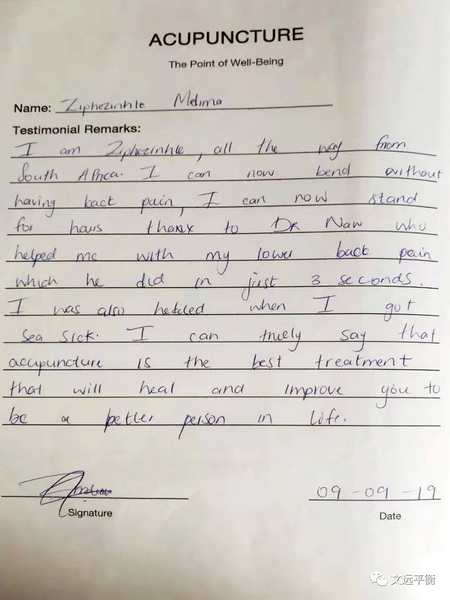 ACUPUNCTURE
The Point of Well-Being
Name: Ziphezinhle Mdima
Testimonial Remarks:
I am Ziphezinhle, all the way from
South Africa. I can now bend without
having back pain, I can now stand
for hours thanx to Dr Naw who
helped me with my lower back pain
which he did in just 3 seconds.
I was also healed when I got
sea sick. I can truely say that
acupuncture is the best treatment
that will heal and improve you to
be a better person in life.
Signature
09-09-19
Date
文远平衡